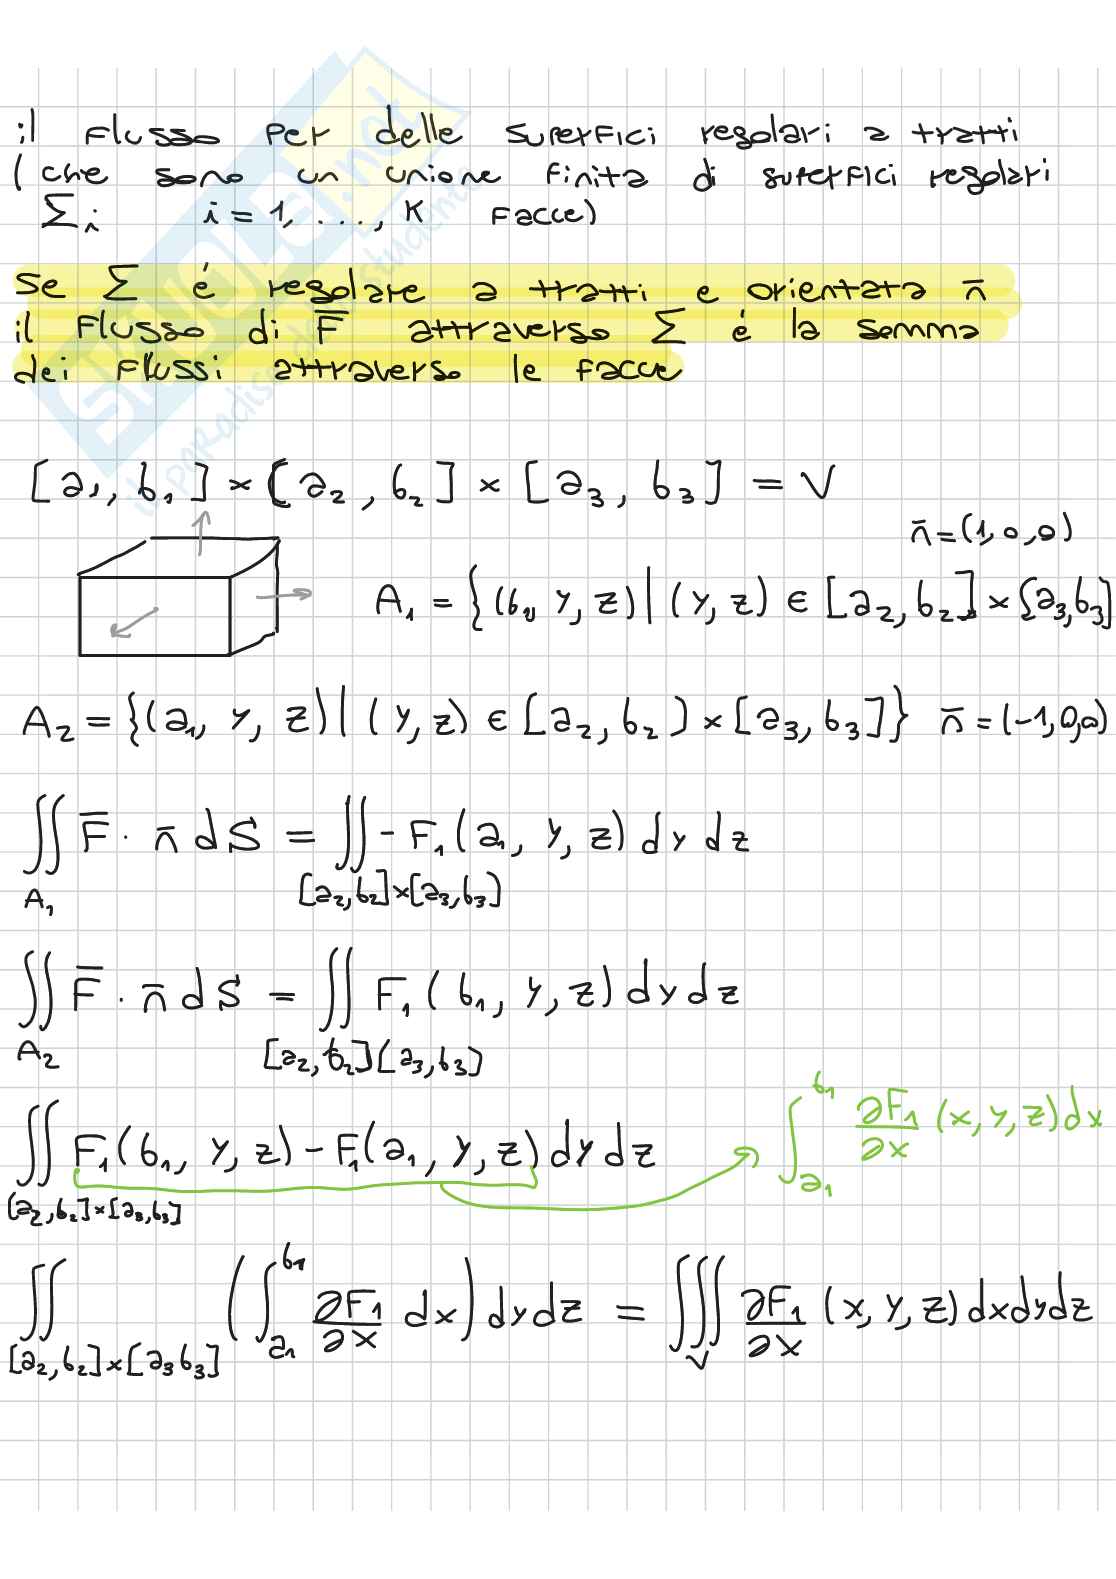 il flusso per delle superfici regolari a tratti
(che sono un unione finita di superfici regolari
Σi i = 1, ..., K facce)
Se Σ é regolare a tratti e orientata n̄
il flusso di F̄ attraverso Σ é la somma
dei flussi attraverso le facce
[a₁, b₁] × [a₂, b₂] × [a₃, b₃] = V
n̄ = (1, 0, 0)
A₁ = {(b₁, y, z) | (y, z) ∈ [a₂, b₂] × [a₃, b₃]
A₂ = {(a₁, y, z) | (y, z) ∈ [a₂, b₂] × [a₃, b₃]} n̄ = (-1, 0, 0)
∬ F̄ · n̄ dS = ∬ - F₁(a₁, y, z) dy dz
A₁ [a₂, b₂] × [a₃, b₃]
∬ F̄ · n̄ dS = ∬ F₁(b₁, y, z) dy dz
A₂ [a₂, b₂] [a₃, b₃]
∬ F₁(b₁, y, z) - F₁(a₁, y, z) dy dz ∫_{a₁}^{b₁} ∂F₁/∂x (x, y, z) dx
[a₂, b₂] × [a₃, b₃]
∬ (∫_{a₁}^{b₁} ∂F₁/∂x dx) dy dz = ∭_V ∂F₁/∂x (x, y, z) dx dy dz
[a₂, b₂] × [a₃ b₃]